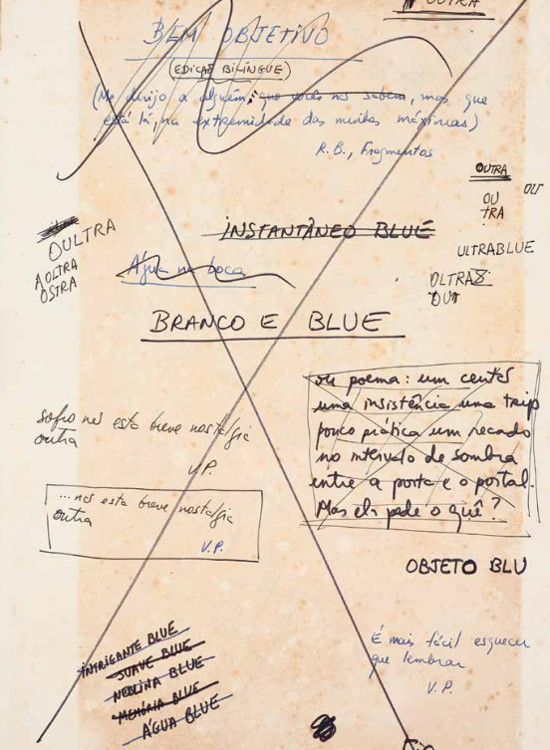 OUTRA
BEM OBJETIVO
(EDIÇÃO BILÍNGUE)
(Me dirijo a alguém, que vocês não sabem, mas que
está lá, na extremidade das minhas máximas)
R.B., Fragmentos
OUTRA
OU
TRA
OUT
OULTRA
AOLTRA
OSTRA
INSTANTÂNEO BLUE
ULTRABLUE
Água na boca
OLTRA
OUT
BRANCO E BLUE
ou poema: um certo
uma insistência uma trip
pouco prática um recado
no intervalo de sombra
entre a porta e o portal.
Mas ela pede o quê?
sofro nos esta breve nostalgia
outra
V.P.
...nos esta breve nostalgia
outra
V.P.
OBJETO BLU
INTRIGANTE BLUE
SUAVE BLUE
NEBLINA BLUE
MEMÓRIA BLUE
ÁGUA BLUE
É mais fácil esquecer
que lembrar
V.P.